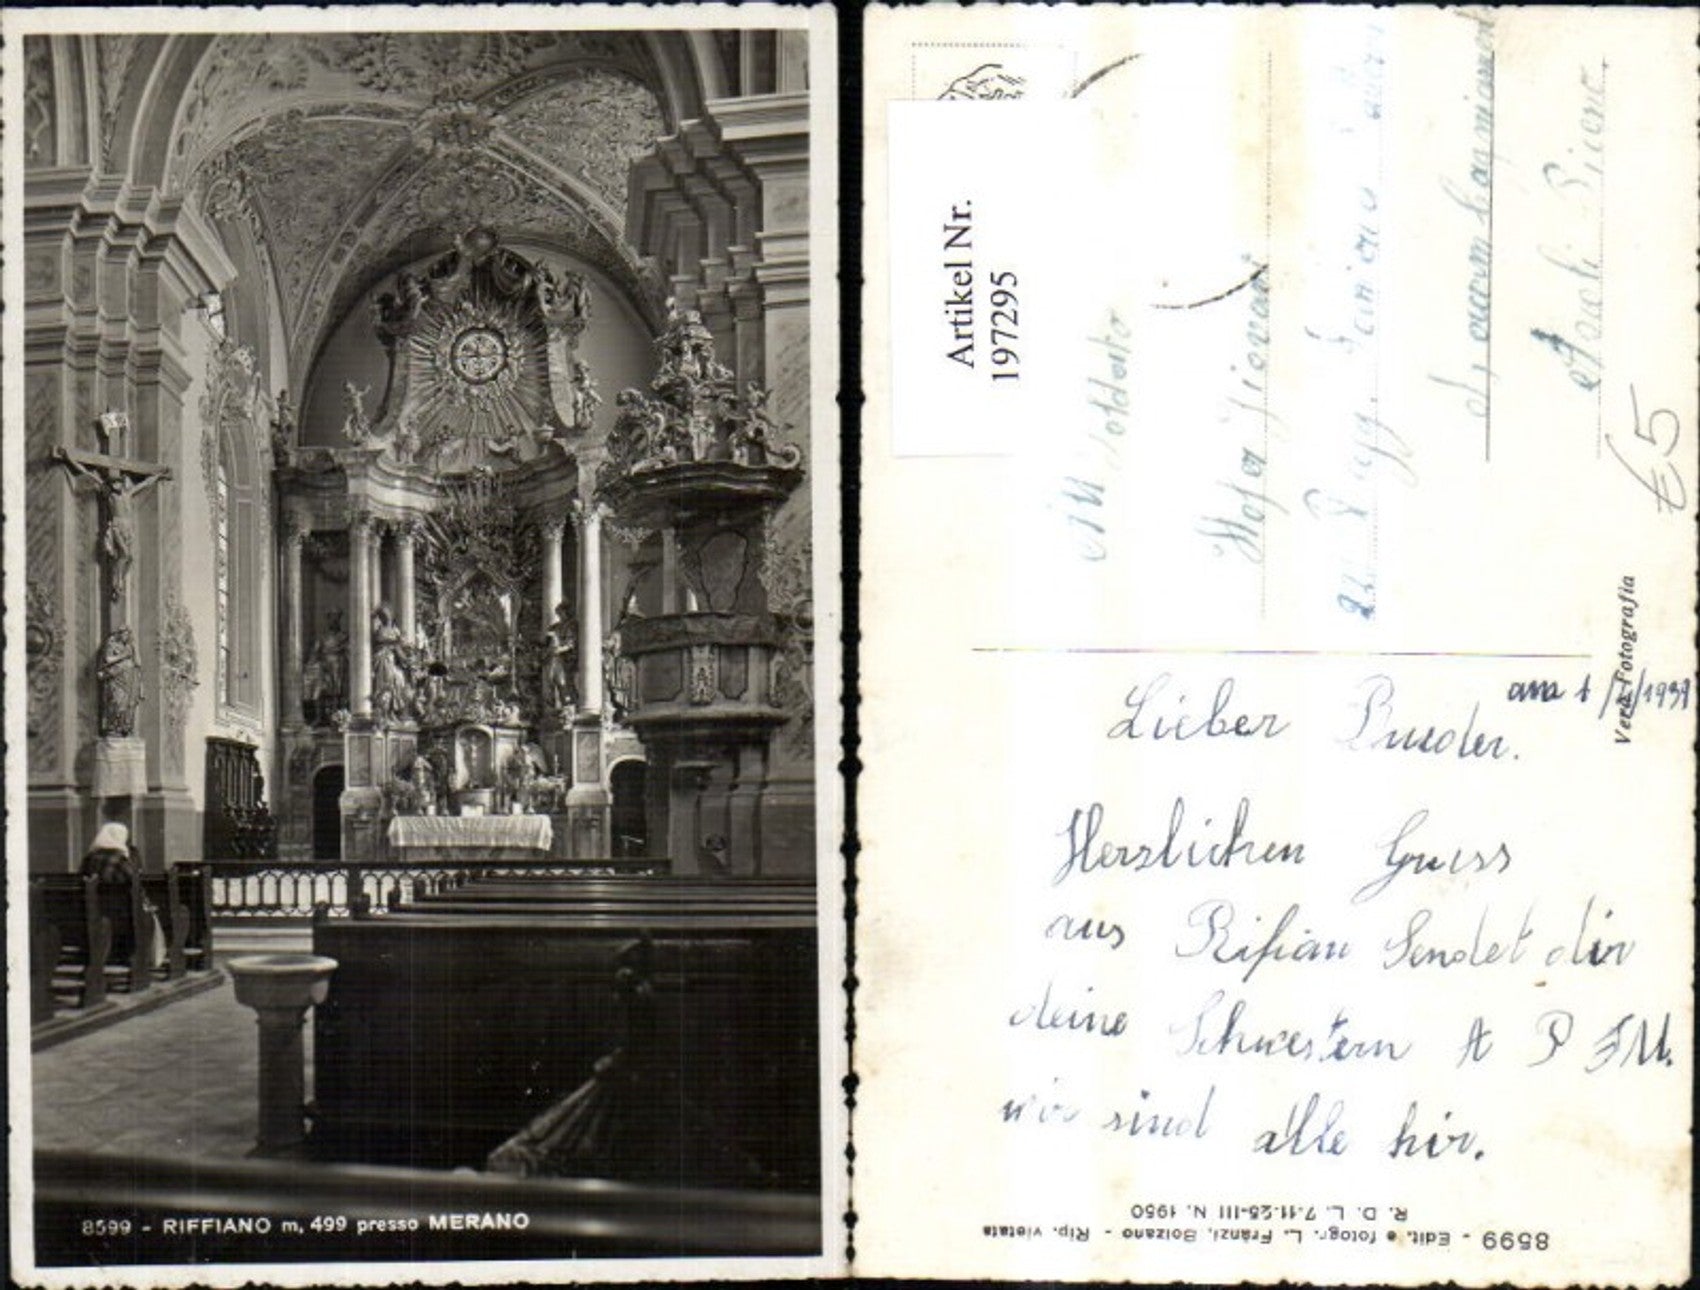 8599 - RIFFIANO m. 499 presso MERANO
Artikel Nr.
197295
Al Soldato
Hofer Giovani
22. Regg. Fanteria
Ascoli Piceno
€5
Vera Fotografia
Lieber Bruder.
Herzlichen Gruss
aus Rifian Sendet dir
deine Schwestern A P F M.
wir sind alle hir.
8599 - Edit. e fotogr. L. Fränzl, Bolzano - Rip. vietata
R. D. L. 7-11-25-III N. 1950